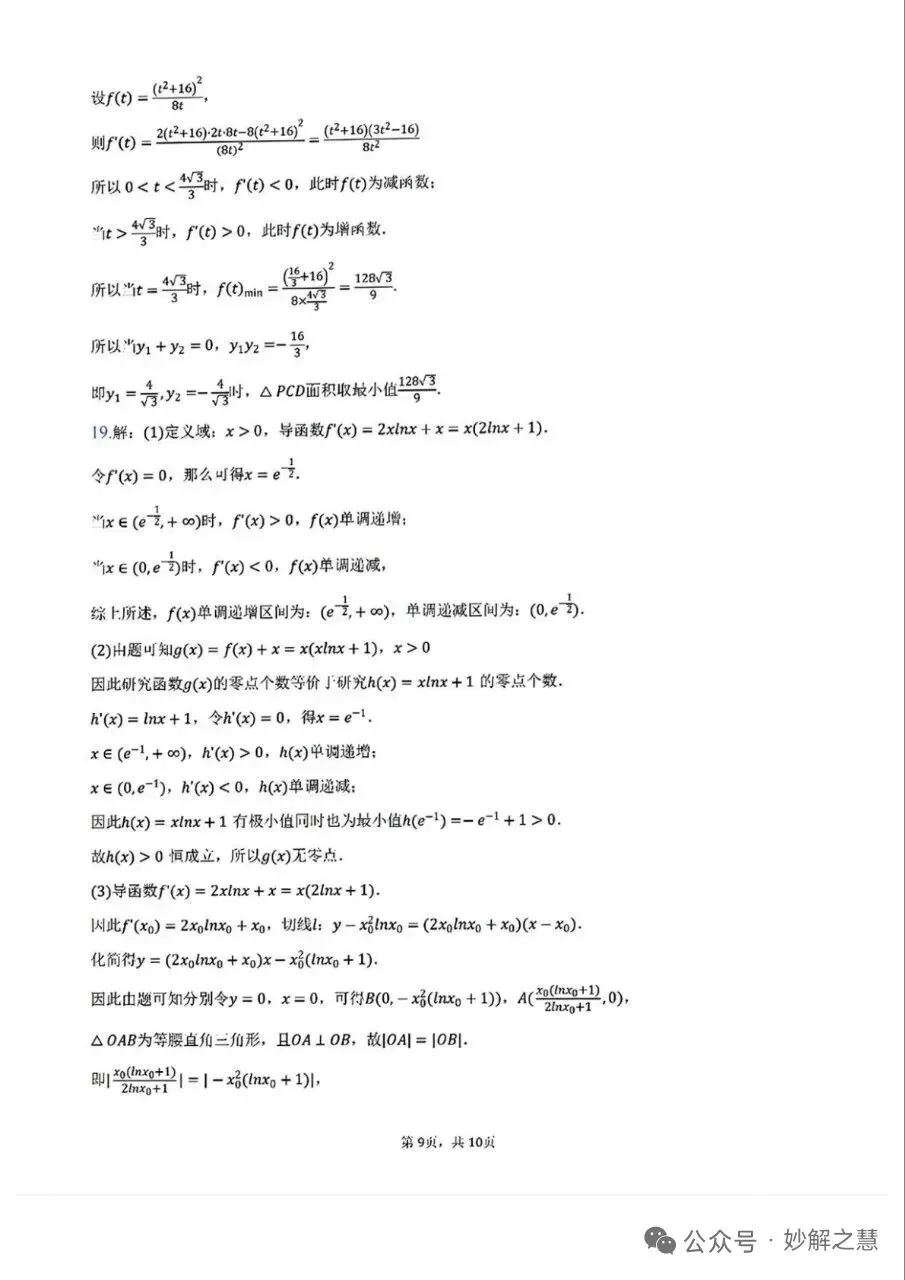 设f(t) = (t²+16)²/8t,
则f'(t) = 2(t²+16)·2t·8t−8(t²+16)²/(8t)² = (t²+16)(3t²−16)/8t²
所以 0 < t < 4√3/3时，f'(t) < 0，此时f(t)为减函数；
当t > 4√3/3时，f'(t) > 0，此时f(t)为增函数.
所以当t = 4√3/3时，f(t)min = (16/3+16)²/8×4√3/3 = 128√3/9.
所以当y₁ + y₂ = 0，y₁y₂ =− 16/3，
即y₁ = 4/√3, y₂ =− 4/√3时，△ PCD面积取最小值128√3/9.
19.解：(1)定义域：x > 0，导函数f'(x) = 2xlnx + x = x(2lnx + 1).
令f'(x) = 0，那么可得x = e^(−1/2).
当x ∈ (e^(−1/2), + ∞)时，f'(x) > 0，f(x)单调递增；
当x ∈ (0, e^(−1/2))时，f'(x) < 0，f(x)单调递减，
综上所述，f(x)单调递增区间为：(e^(−1/2), + ∞)，单调递减区间为：(0, e^(−1/2)).
(2)由题可知g(x) = f(x) + x = x(xlnx + 1)，x > 0
因此研究函数g(x)的零点个数等价于研究h(x) = xlnx + 1 的零点个数.
h'(x) = lnx + 1，令h'(x) = 0，得x = e⁻¹.
x ∈ (e⁻¹, + ∞)，h'(x) > 0，h(x)单调递增；
x ∈ (0, e⁻¹)，h'(x) < 0，h(x)单调递减；
因此h(x) = xlnx + 1 有极小值同时也为最小值h(e⁻¹) =− e⁻¹ + 1 > 0.
故h(x) > 0 恒成立，所以g(x)无零点.
(3)导函数f'(x) = 2xlnx + x = x(2lnx + 1).
因此f'(x₀) = 2x₀lnx₀ + x₀，切线l：y − x₀²lnx₀ = (2x₀lnx₀ + x₀)(x − x₀).
化简得y = (2x₀lnx₀ + x₀)x − x₀²(lnx₀ + 1).
因此由题可知分别令y = 0，x = 0，可得B(0, − x₀²(lnx₀ + 1))，A(x₀(lnx₀+1)/2lnx₀+1, 0)，
△ OAB为等腰直角三角形，且OA ⊥ OB，故|OA| = |OB|.
即|x₀(lnx₀+1)/2lnx₀+1| = | − x₀²(lnx₀ + 1)|，
第 9页，共 10页
公众号 · 妙解之慧